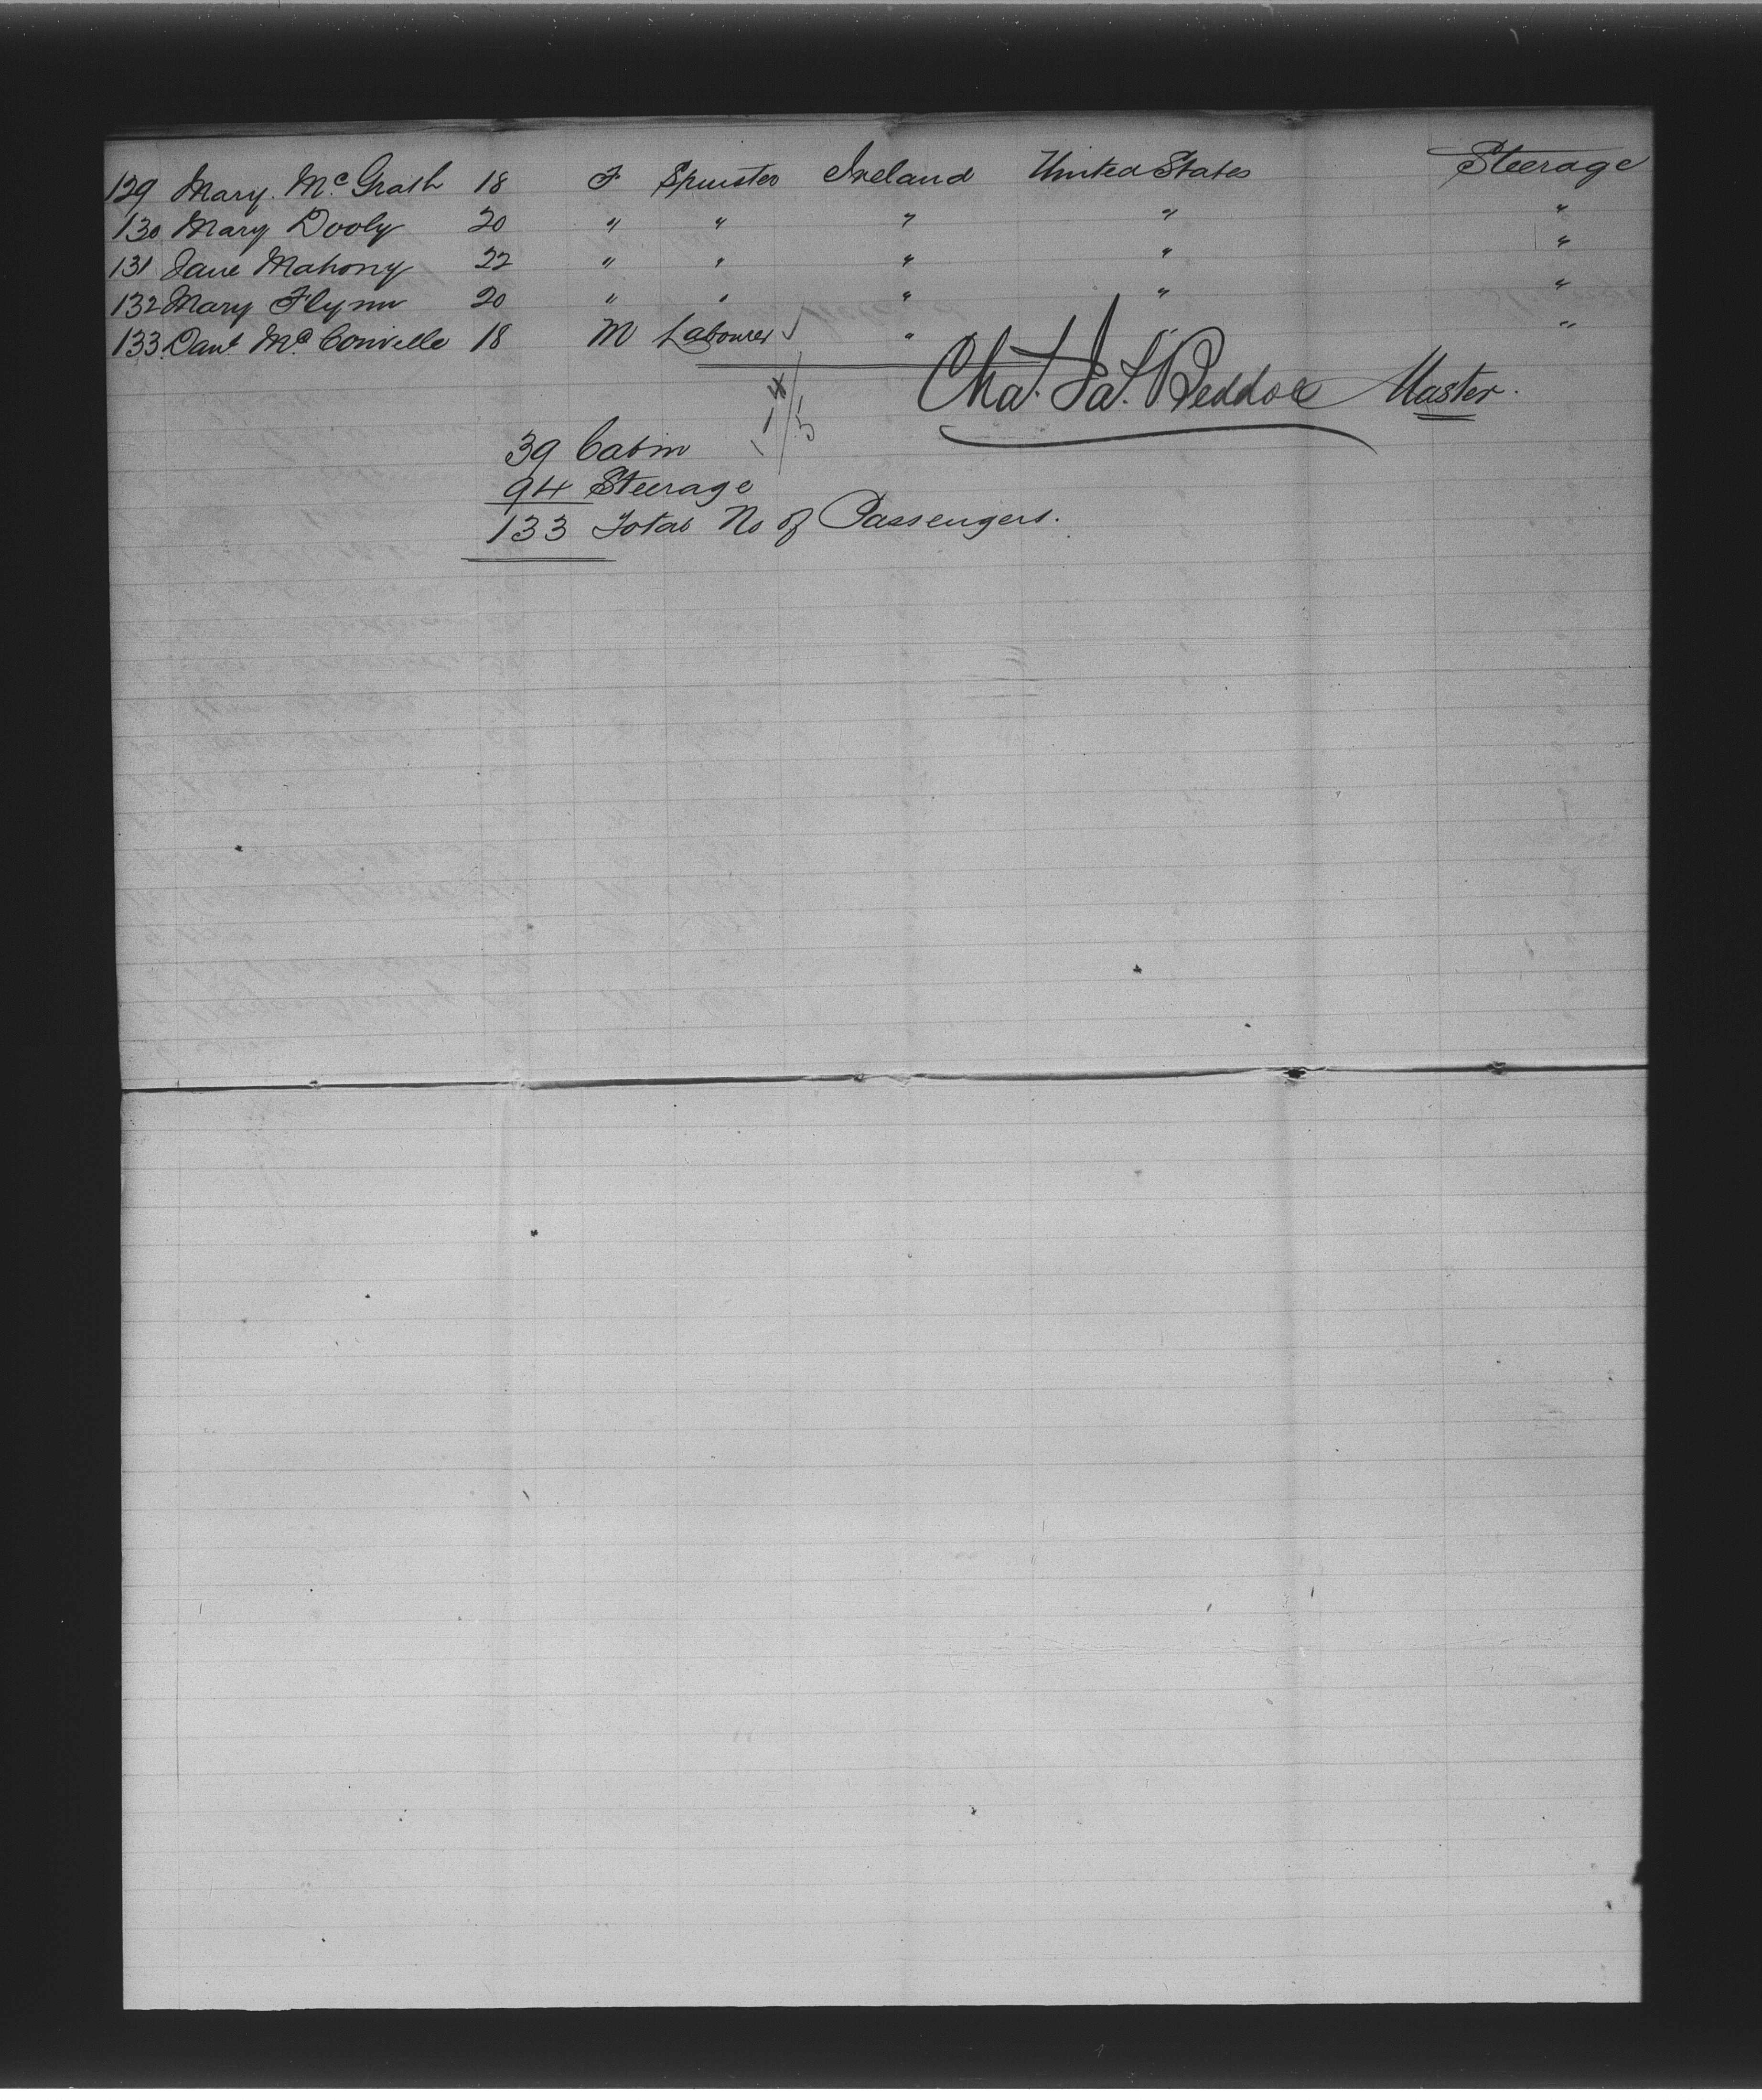 129 Mary. Mc Grath 18 F Spinster Ireland United States Steerage
130 Mary Dooly 20 " " " " "
131 Jane Mahony 22 " " " " "
132 Mary Flynn 20 " " " " "
133 Danl Mc Conville 18 M Labourer " " "
Chas. Jas. Beddoe Master.
39 Cabin
94 Steerage
133 Total No of Passengers.